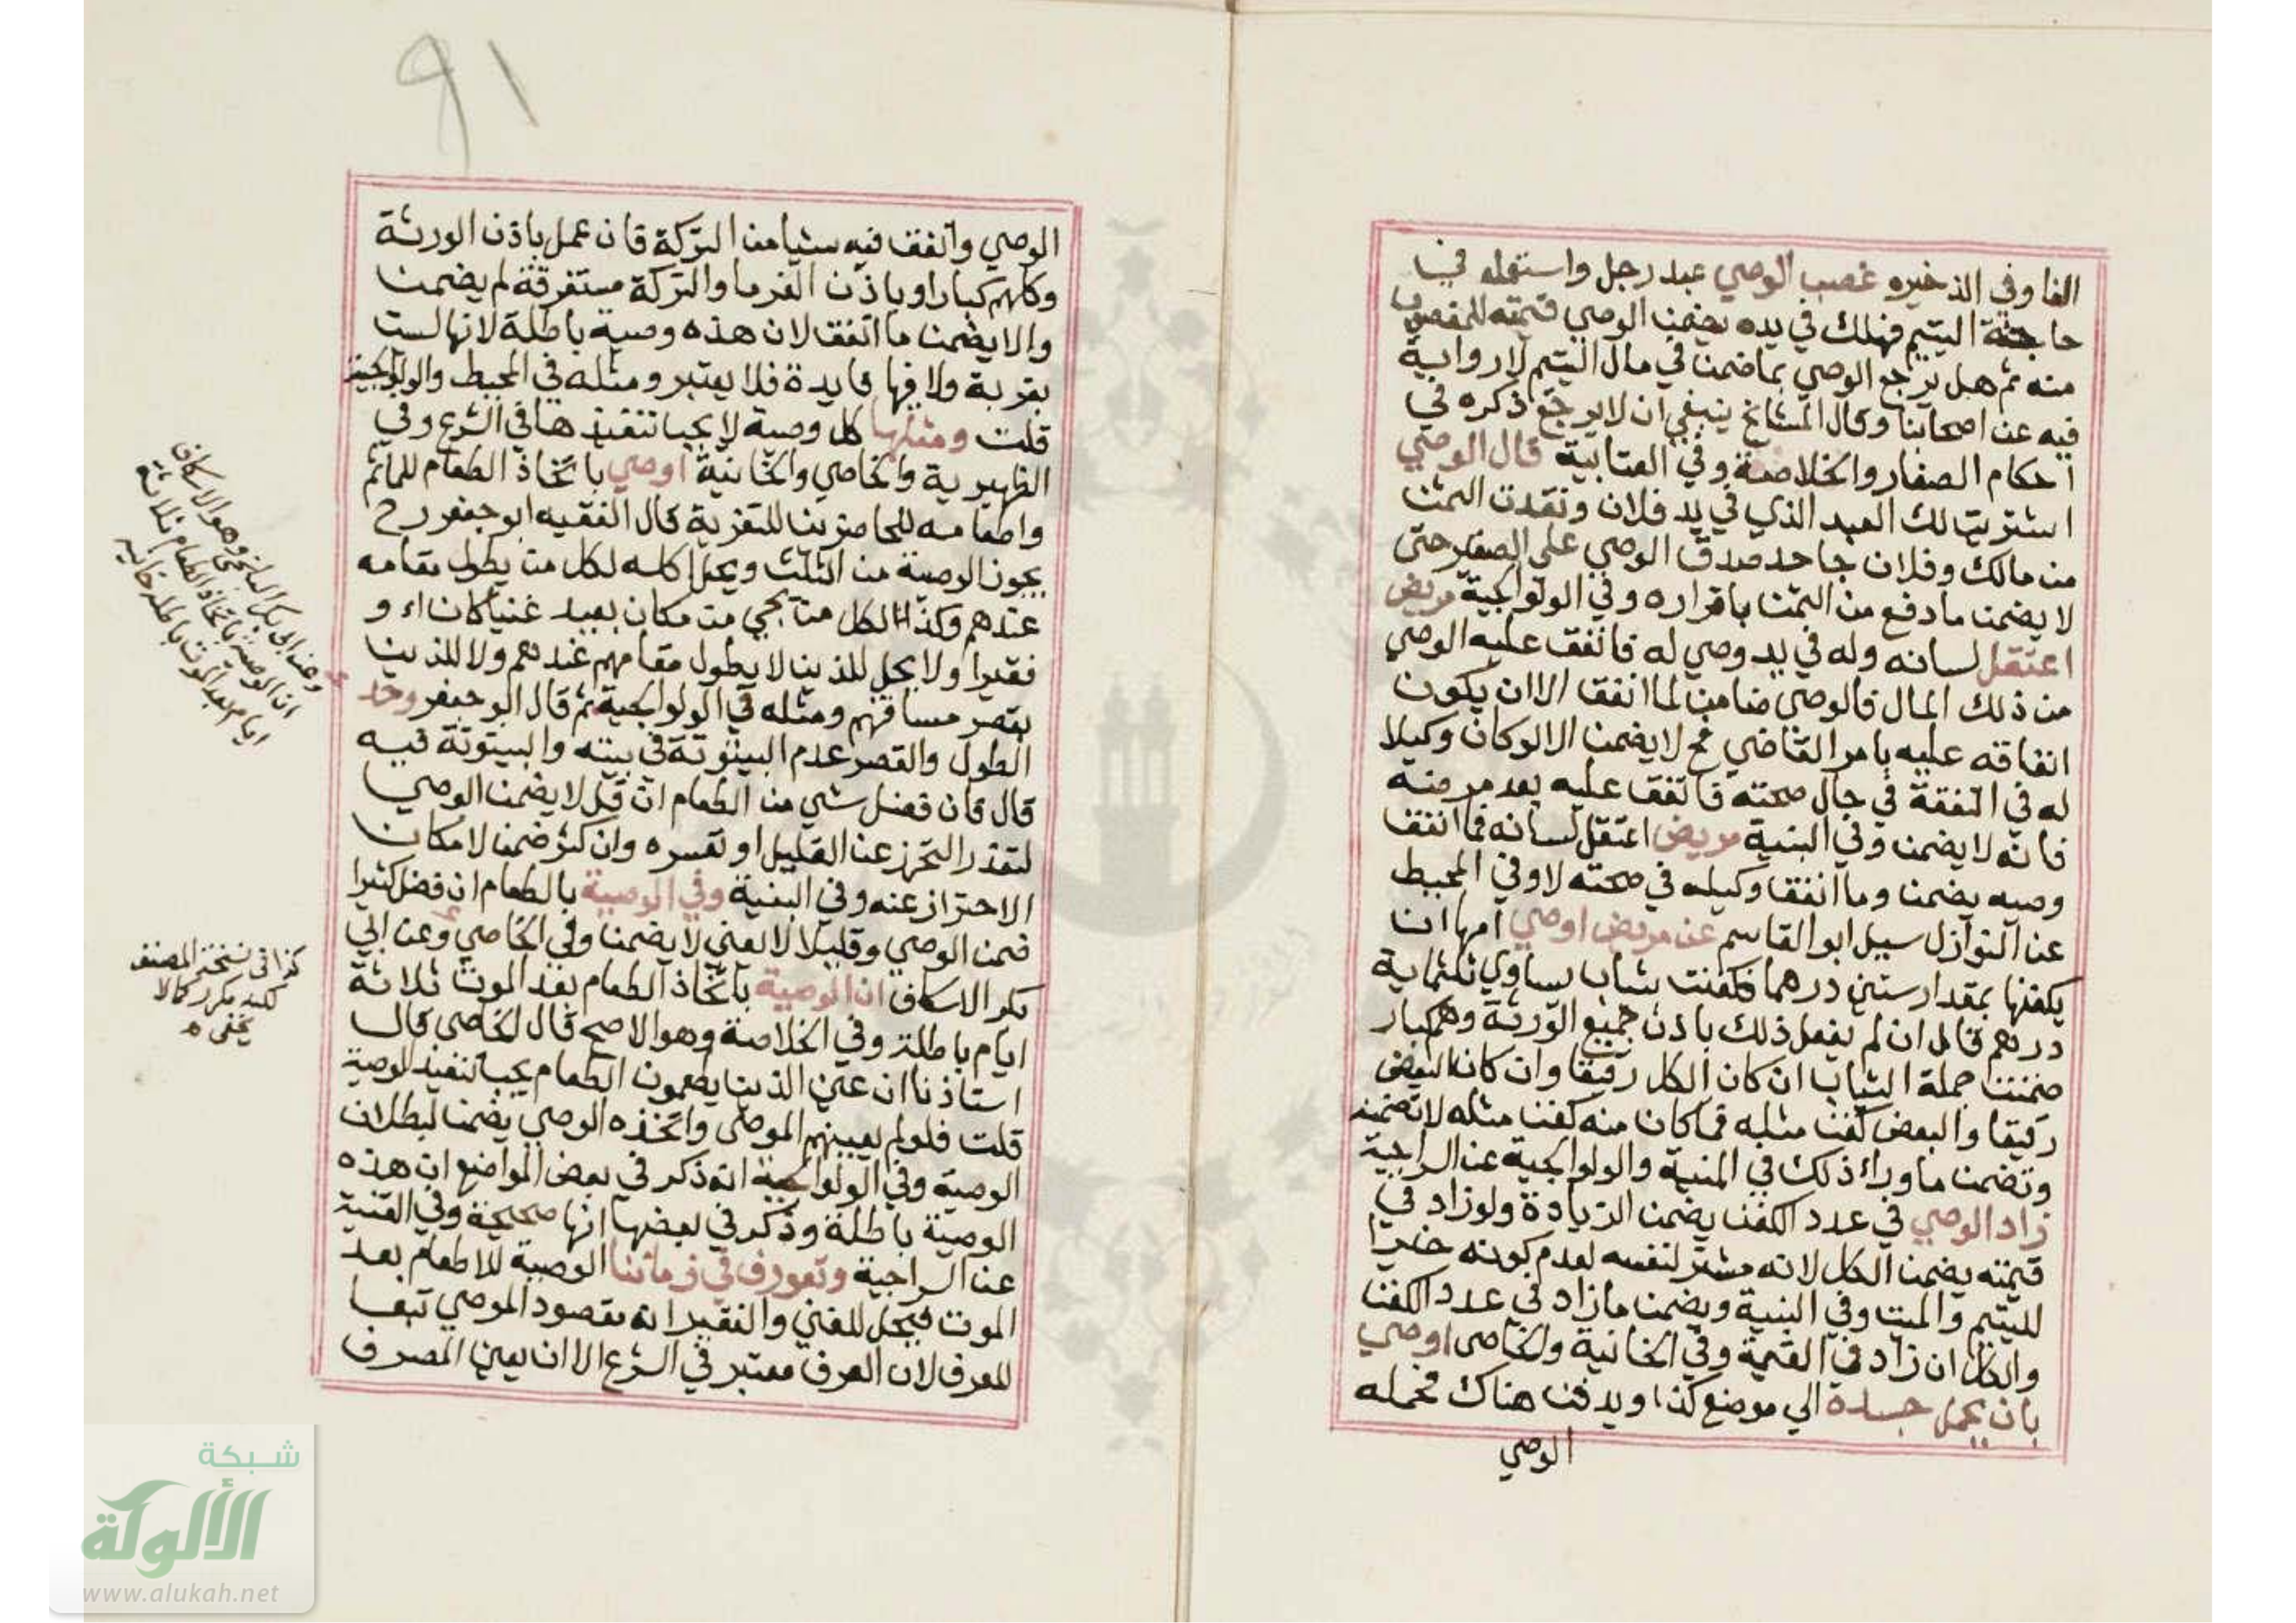 الفا وفي الذخيره غصب الوصي عبد رجل واستعمله في
حاجة اليتيم فهلك في يده يضمن الوصي قيمته للمغصوب
منه ثم هل يرجع الوصي بما ضمن في مال اليتيم لا رواية
فيه عن اصحابنا وقال المشايخ ينبغي ان لا يرجع ذكره في
احكام الصغار والخلاصة وفي العتابية قال الوصي
اشتريت لك العبد الذي في يد فلان ونقدت الثمن
من مالك وفلان جاحد صدق الوصي على الصغير حتى
لا يضمن ما دفع من الثمن باقراره وفي الولوالجية مريض
اعتقل لسانه وله في يد وصي له فانفق عليه الوصي
من ذلك المال فالوصي ضامن لما انفق الا ان يكون
انفاقه عليه بامر القاضي فح لا يضمن الا لو كان وكيلا
له في النفقة في حال صحته فانفق عليه بعد مرضه
فانه لا يضمن وفي البنية مريض اعتقل لسانه فما انفق
وصيه يضمن وما انفق وكيله في صحته لا وفي المحيط
عن النوازل سيل ابو القاسم عن مريض اوصي امها ان
يكفنها بمقدار ستين درهما فكفنت بثياب يساوي ثلثماية
درهم قال ان لم يفعل ذلك باذن جميع الورثة وهم كبار
ضمنت جملة الثياب ان كان الكل رقيقا وان كان البعض
رقيقا والبعض كفن مثله فما كان منه كفن مثله لا تضمنه
وتضمن ما وراء ذلك في المنية والولوالجية عن السراجية
زاد الوصي في عدد الكفن يضمن الزيادة ولو زاد في
قيمته يضمن الكل لانه مشتر لنفسه لعدم كونه خيرا
لليتيم والميت وفي البنية ويضمن ما زاد في عدد الكفن
والكل ان زاد في القيمة وفي الخانية والخاصي اوصي
بان يحمل جسده الي موضع كذا ويدفن هناك فحمله
الوصي
٩١
الوصي وانفق فيه شيا من التركة فان عمل باذن الورثة
وكلهم كبار او باذن الغرما والتركة مستغرقة لم يضمن
والا يضمن ما انفق لان هذه وصية باطلة لانها لست
بقربة ولا فيها فايدة فلا يعتبر ومثله في المحيط والولوالجية
قلت ومثلها كل وصية لا يجب تنفيذها في الشرع وفي
الظهيرية والخاصي والخانية اوصي باتخاذ الطعام للماتم
واطعامه للحاضرين للتعزية قال الفقيه ابو جعفر رح
يجوز الوصية من الثلث ويحل اكله لكل من يطول مقامه
عندهم وكذا الكل من يجي من مكان بعيد غنيا كان او
فقيرا ولا يحل للذين لا يطول مقامهم عندهم ولا للذين
يقصر مسافتهم ومثله في الولوالجية ثم قال ابو جعفر وحد
الطول والقصر عدم البيتوتة في بيته والبيتوتة فيه
قال فان فضل شي من الطعام ان قل لا يضمن الوصي
لتعذر التحرز عن القليل او تعسره وان كثر ضمن لامكان
الاحتراز عنه وفي البغية وفي الوصية بالطعام ان فضل كثيرا
ضمن الوصي وقليلا لا لغني لا يضمن وفي الخاصي وعن ابي
بكر الاسكاف ان الوصية باتخاذ الطعام بعد الموت ثلاثة
ايام باطلة وفي الخلاصة وهو الاصح قال الخاصي قال
استاذنا ان عين الذين يطعمون الطعام يجب تنفيذ الوصية
قلت فلو لم يعينهم الموصي واتخذه الوصي يضمن لبطلان
الوصية وفي الولوالجية انه ذكر في بعض المواضع ان هذه
الوصية باطلة وذكر في بعضها انها صحيحة وفي القنية
عن السراجية وتعورف في زماننا الوصية للاطعام بعد
الموت فيحل للغني والفقير انه مقصود الموصي تبعا
للعرف لان العرف معتبر في الشرع الا ان يعين المصرف
وعن ابي بكر البلخي وهو الاسكاف
ان الوصية باتخاذ الطعام ثلاثة
ايام بعد الموت باطلة خانيه
كذا في نسخة المصنف
لكنه مكرر كما لا
يخفى ه
شبكة
الألوكة
www.alukah.net